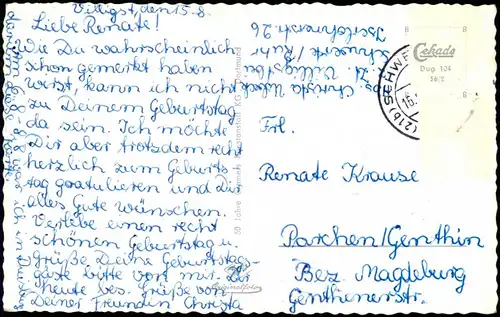 Villigst, den 15.8.
Liebe Renate!
Wie Du wahrscheinlich
schon gemerkt haben
wirst, kann ich nicht
zu Deinem Geburtstag
da sein. Ich möcht
Dir aber trotsdem recht
herzlich zum Geburts
tag gratulieren und Dir
alles Gute wünschen.
Verlebe einen recht
schönen Geburtstag u.
grüße Deine Geburtstags-
gäste bitte von mir. Dir
heute bes. Grüße von
Deiner Freundin Christa
Christa
z. Zt. Villigst bei
Schwerte / Ruhr
Iserlohnerstr. 26
Cekade
Dug 104
56/2
(21b) SCHWE
Frl.
Renate Krause
Parchen/Genthin
Bez. Magdeburg
Genthinerstr.
Originalfoto